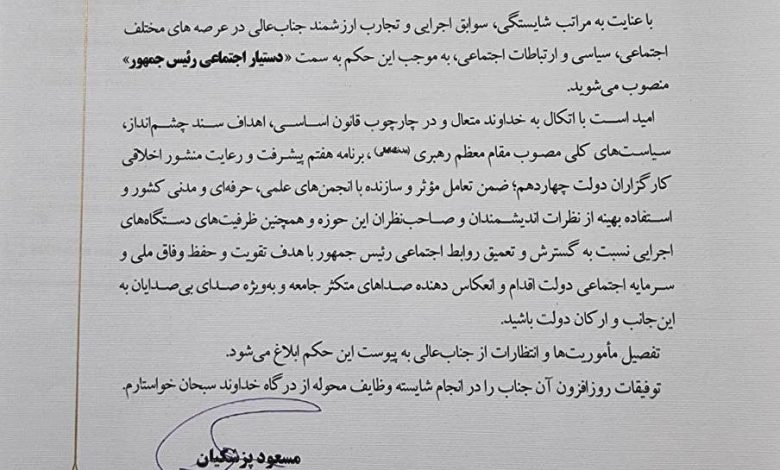 با عنایت به مراتب شایستگی، سوابق اجرایی و تجارب ارزشمند جناب‌عالی در عرصه های مختلف
اجتماعی، سیاسی و ارتباطات اجتماعی، به موجب این حکم به سمت «دستیار اجتماعی رئیس جمهور»
منصوب می‌شوید.
امید است با اتکال به خداوند متعال و در چارچوب قانون اساسی، اهداف سند چشم‌انداز،
سیاست‌های کلی مصوب مقام معظم رهبری ، برنامه هفتم پیشرفت و رعایت منشور اخلاقی
کارگزاران دولت چهاردهم؛ ضمن تعامل مؤثر و سازنده با انجمن‌های علمی، حرفه‌ای و مدنی کشور و
استفاده بهینه از نظرات اندیشمندان و صاحب‌نظران این حوزه و همچنین ظرفیت‌های دستگاه‌های
اجرایی نسبت به گسترش و تعمیق روابط اجتماعی رئیس جمهور با هدف تقویت و حفظ وفاق ملی و
سرمایه اجتماعی دولت اقدام و انعکاس دهنده صداهای متکثر جامعه و به‌ویژه صدای بی‌صدایان به
این‌جانب و ارکان دولت باشید.
تفصیل مأموریت‌ها و انتظارات از جناب‌عالی به پیوست این حکم ابلاغ می‌شود.
توفیقات روزافزون آن جناب را در انجام شایسته وظایف محوله از درگاه خداوند سبحان خواستارم.
مسعود پزشکیان